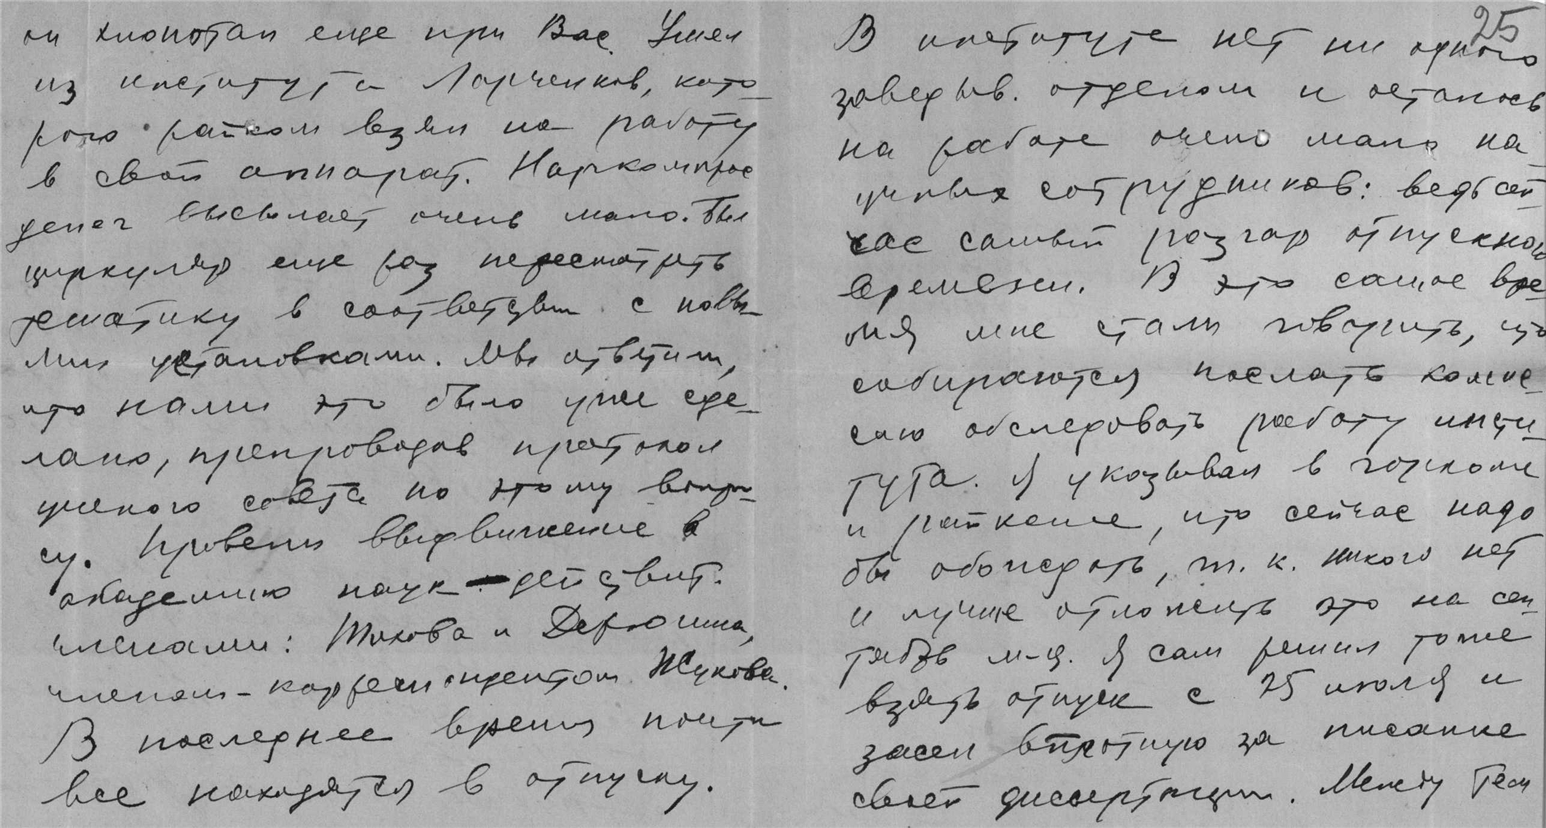 он хлопотал еще при Вас. Ушел
из института Ларченков, кото-
рого райком взял на работу
в свой аппарат. Наркомпрос
денег высылает очень мало. Был
циркуляр еще раз пересмотреть
тематику в соответствии с новы-
ми установками. Мы ответили,
что нами это было уже сде-
лано, препроводив протокол
ученого совета по этому вопро-
су. Провели выдвижение в
академию наук действит.
членами: и
членом-корреспондентом Жукова.
В последнее время почти
все находятся в отпуску.
25
В институте нет ни одного
заведыв. отделом и осталось
на работе очень мало на-
учных сотрудников: ведь сей-
час самый разгар отпускного
времени. В это самое вре-
мя мне стали говорить, что
собираются послать комис-
сию обследовать работу инсти-
тута. Я указывал в горкоме
и райкоме, что сейчас надо
бы обождать, т. к. никого нет
и лучше отложить это на сен-
тябрь м-ц. Я сам решил тоже
взять отпуск с 25 июля и
засел вплотную за писание
своей диссертации. Между тем